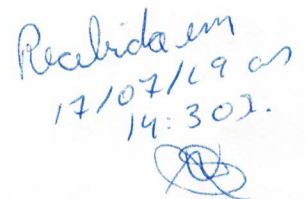 Recebida em
17/07/19 as
14:30).